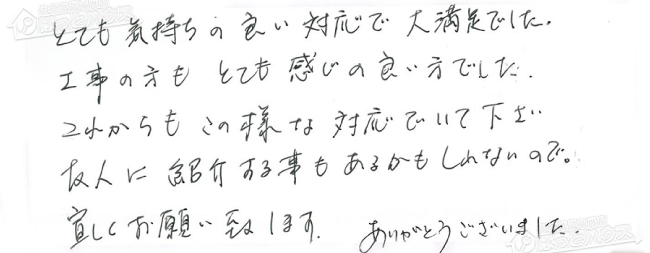 とても気持ちの良い対応で大満足でした.
工事の方も とても感じの良い方でした.
これからもこの様な対応でいて下さい
友人に紹介する事もあるかもしれないので。
宜しくお願い致します. ありがとうございました.